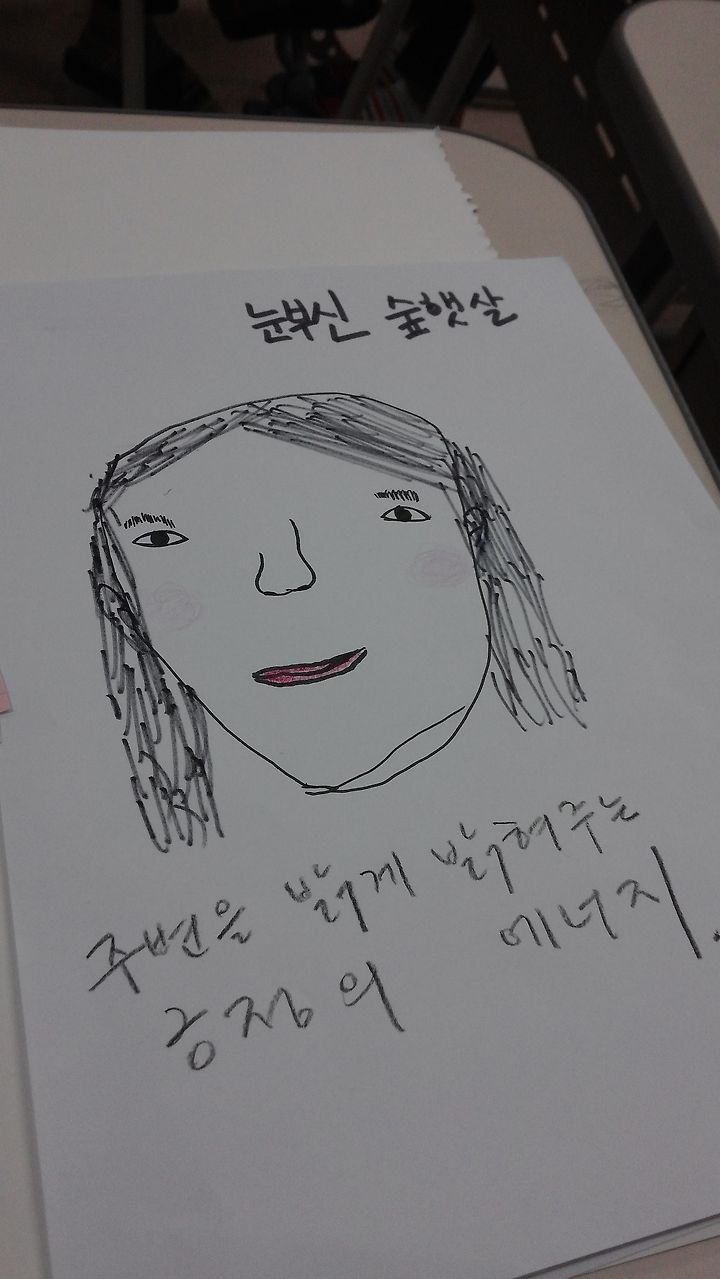 눈부신 숲햇살
주변을 밝게 밝혀주는
긍정의 에너지.